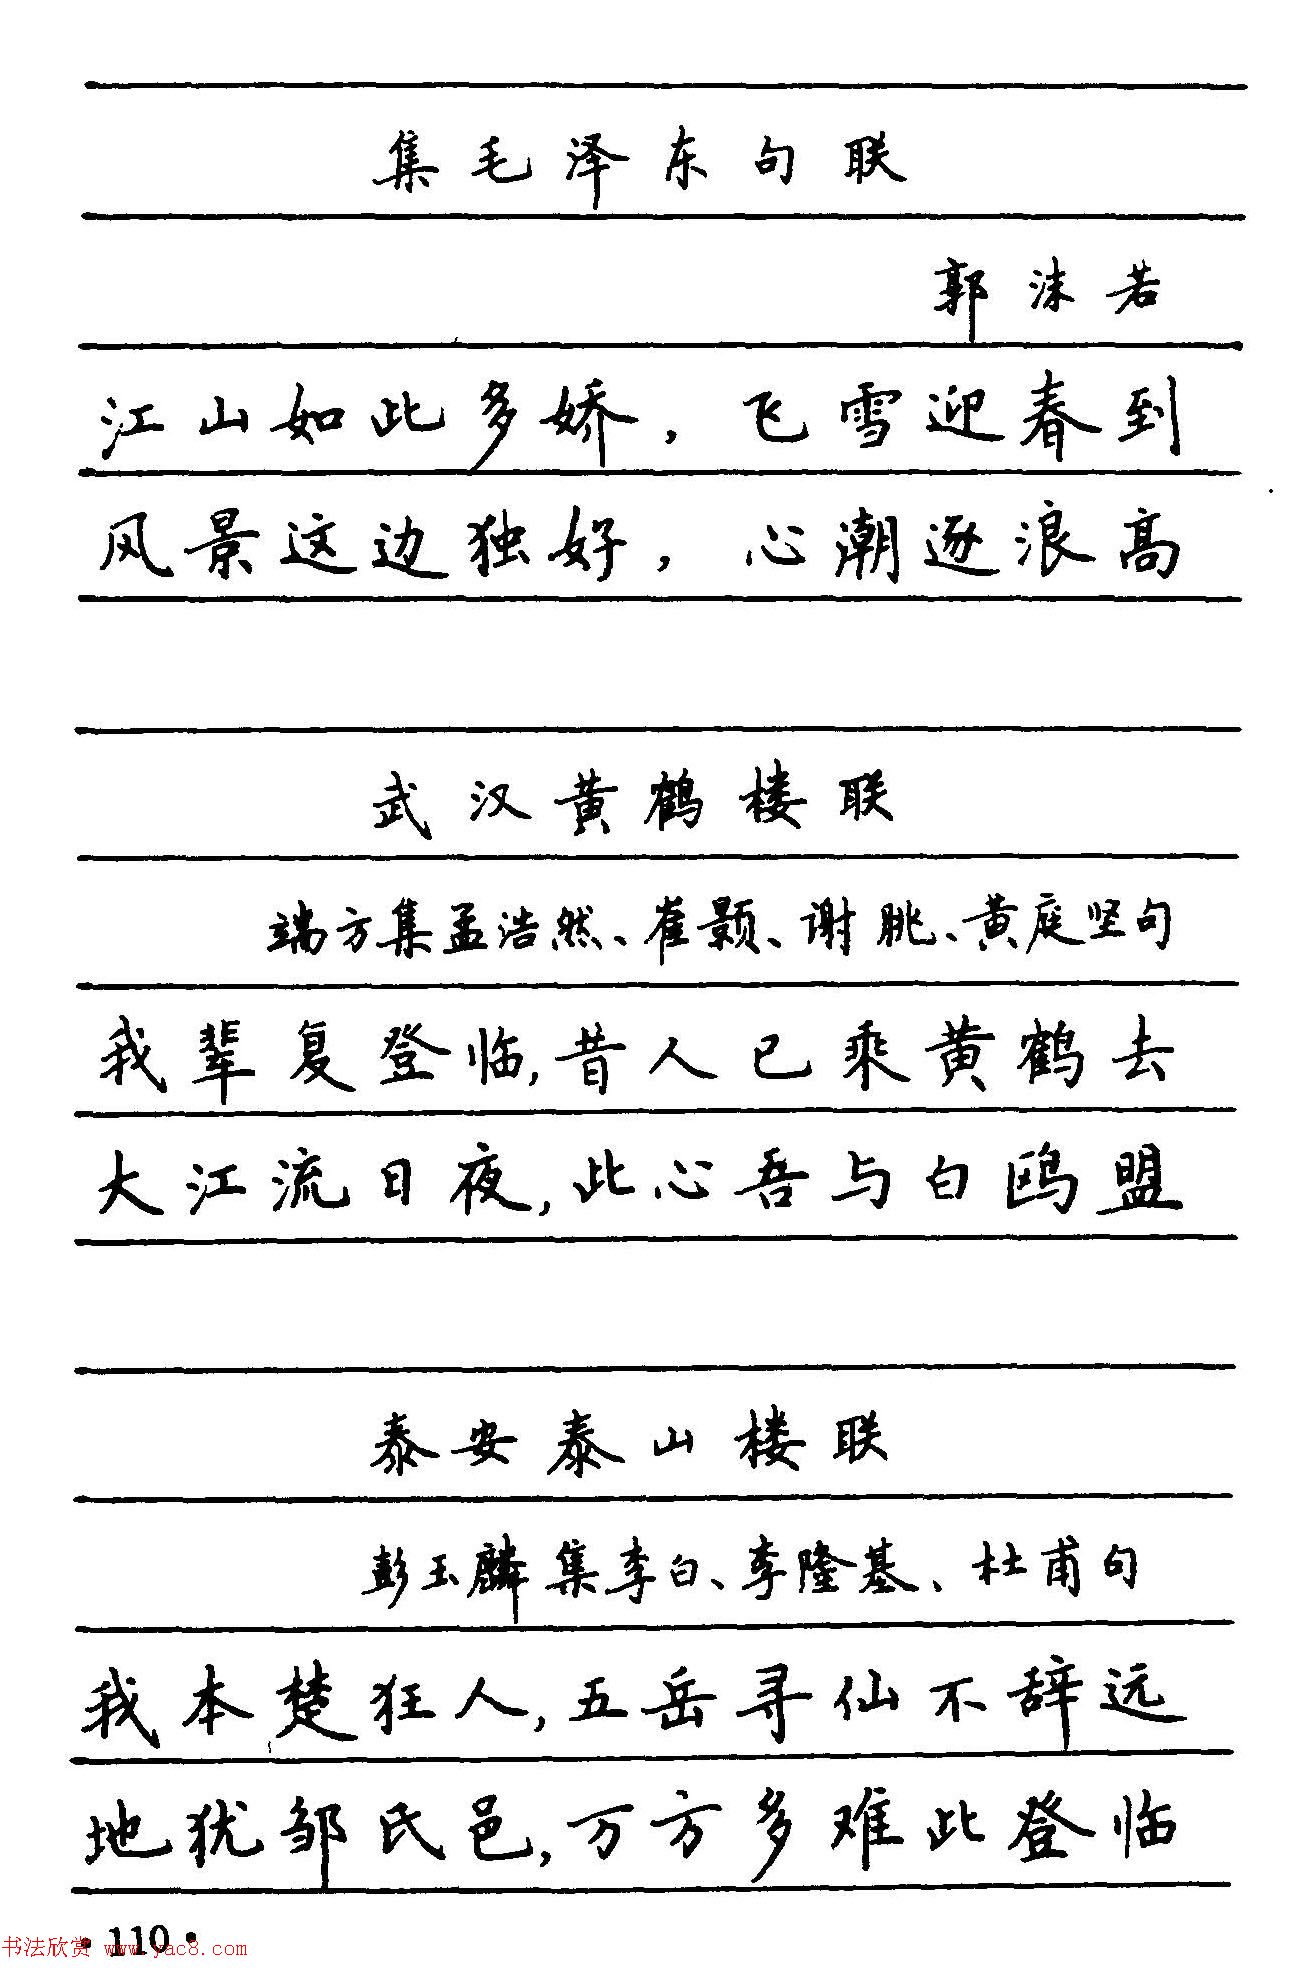 集毛泽东句联
郭沫若
江山如此多娇，飞雪迎春到
风景这边独好，心潮逐浪高
武汉黄鹤楼联
端方集孟浩然、崔颢、谢朓、黄庭坚句
我辈复登临，昔人已乘黄鹤去
大江流日夜，此心吾与白鸥盟
泰安泰山楼联
彭玉麟集李白、李隆基、杜甫句
我本楚狂人，五岳寻仙不辞远
地犹邹氏邑，万方多难此登临
·110·
书法欣赏 www.yac8.com